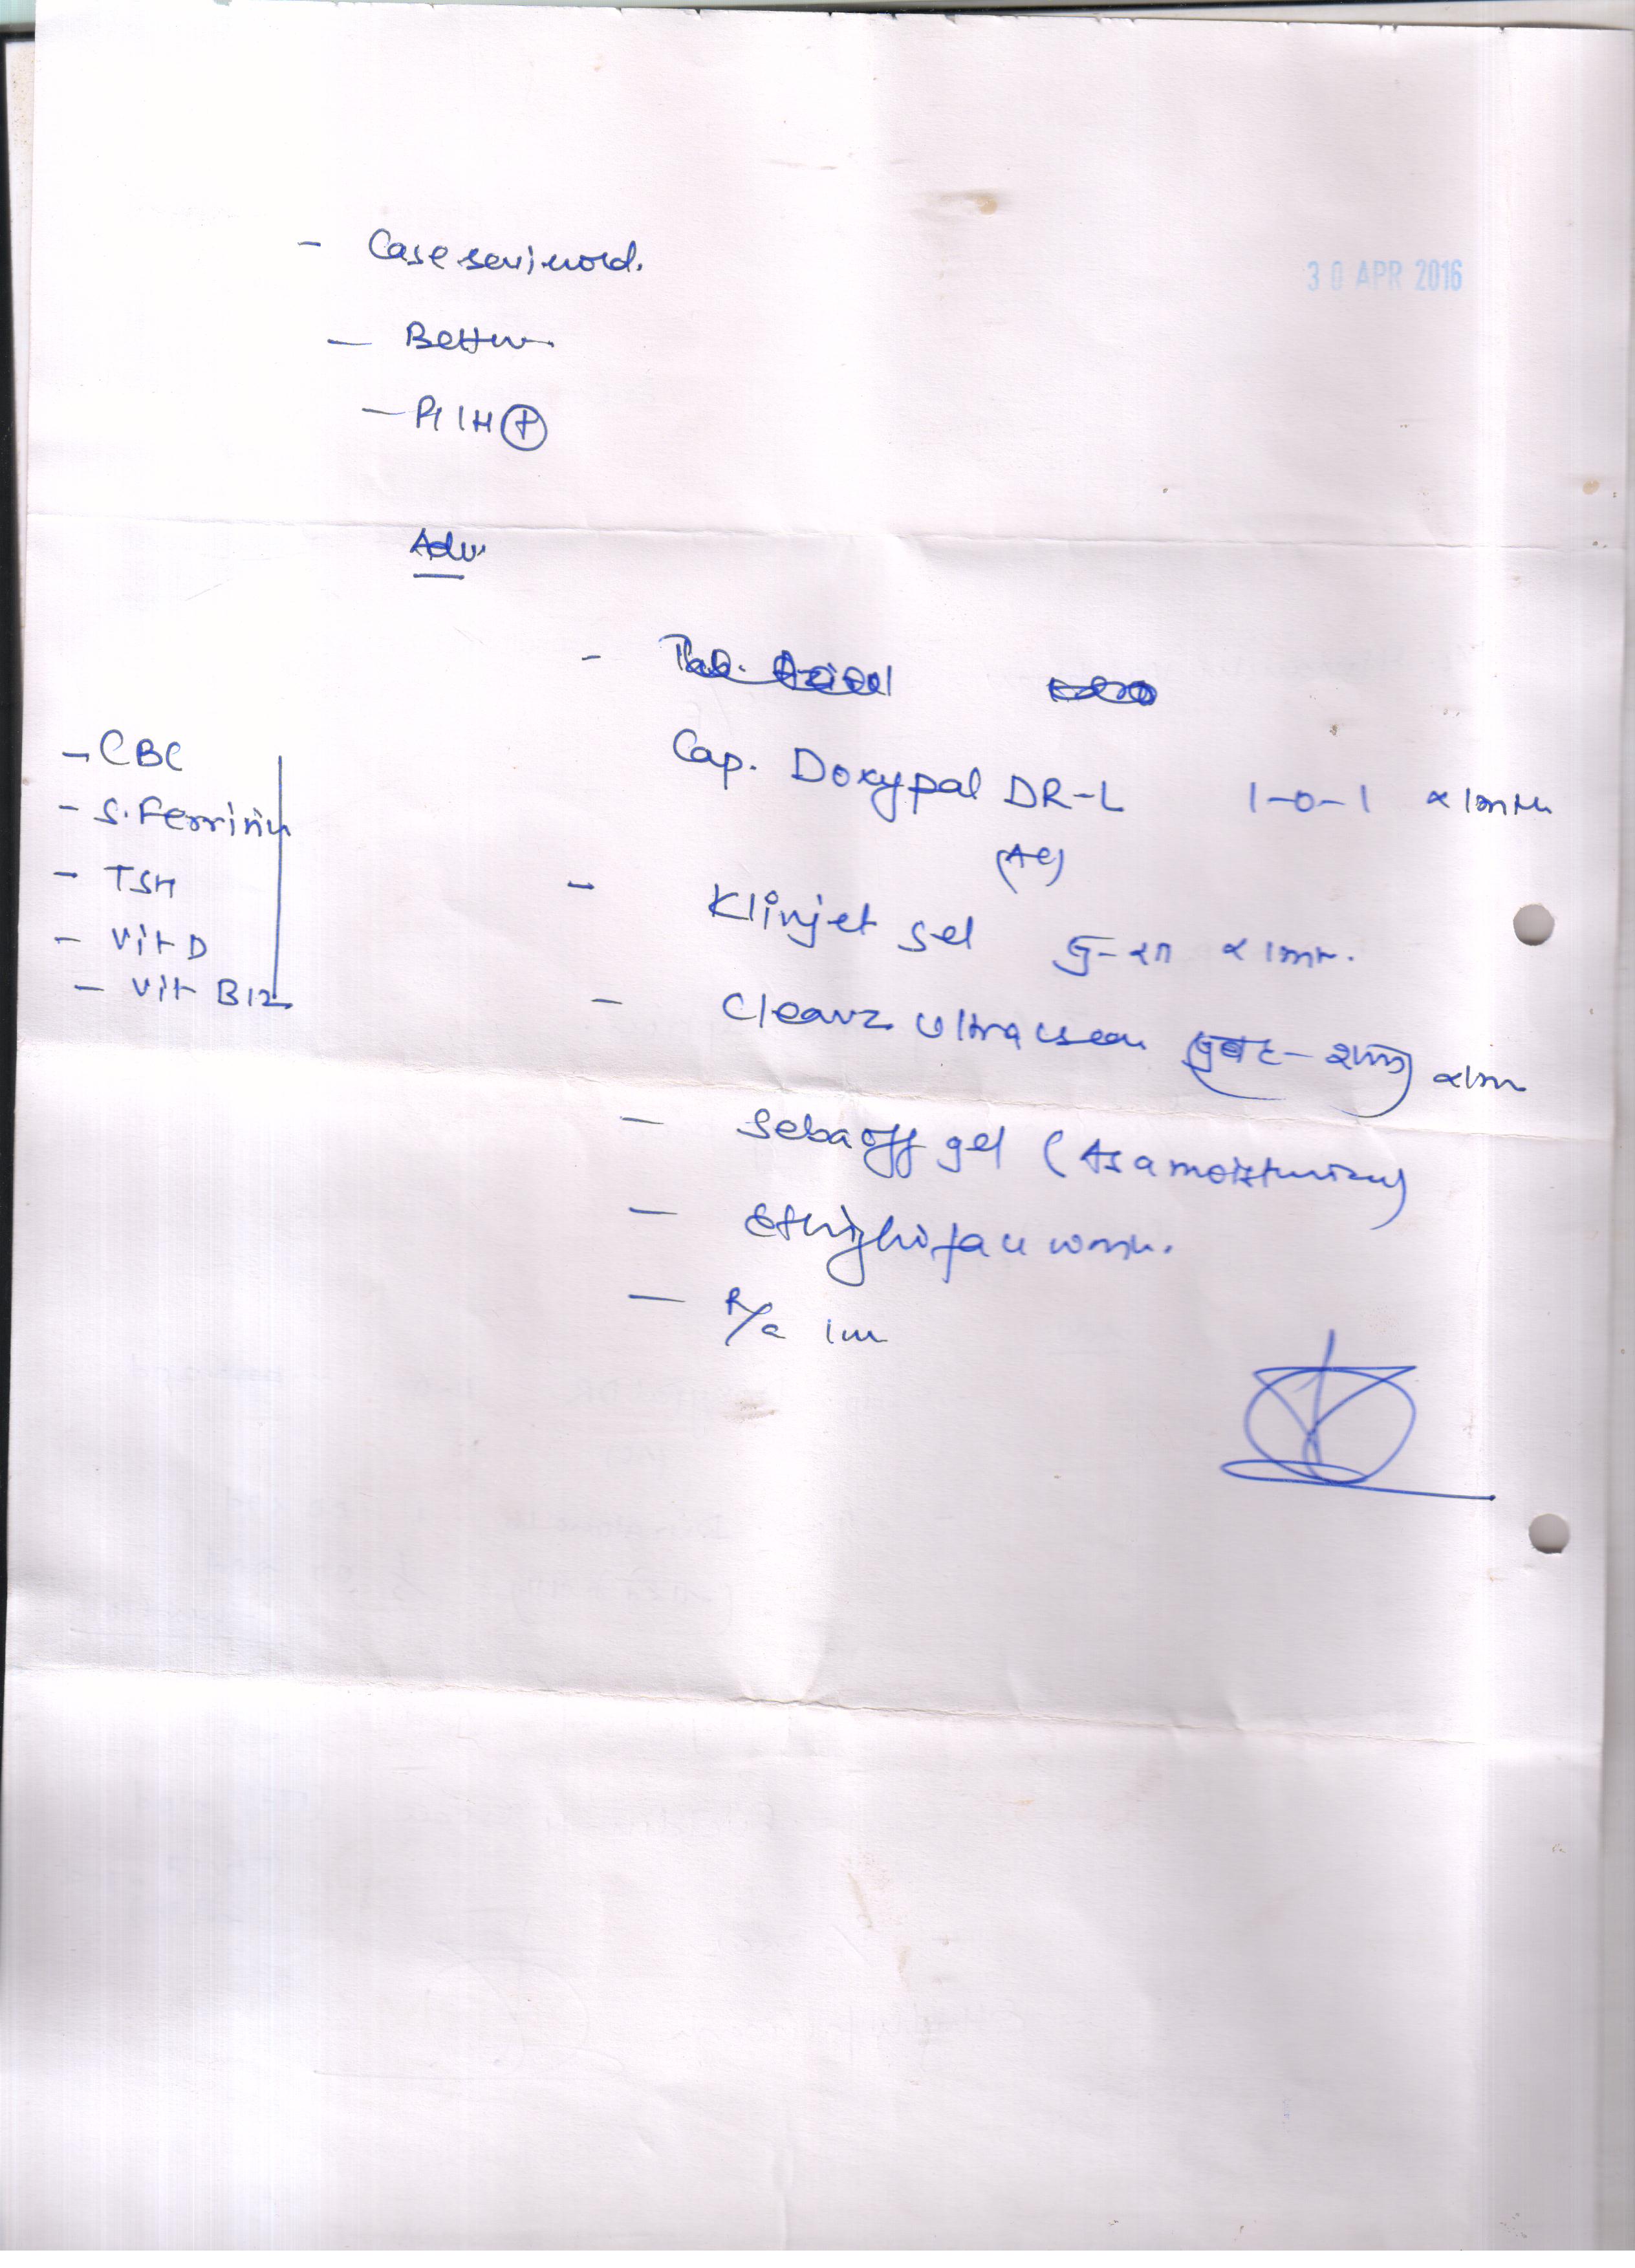 30 APR 2016
- Case reviewed.
- Better
- PIH +
Adv
- Tab.
Cap. Doxypal DR-L 1-0-1 x 1mth
(AC)
- CBC
- S. Ferritin
- TSH
- Vit D
- Vit B12
- Klinjet gel x 1mth.
- Clearz Ultra cream x 1m
- Sebaoff gel (As a moisturizer)
- Ethiglo face wash.
- R/a 1m